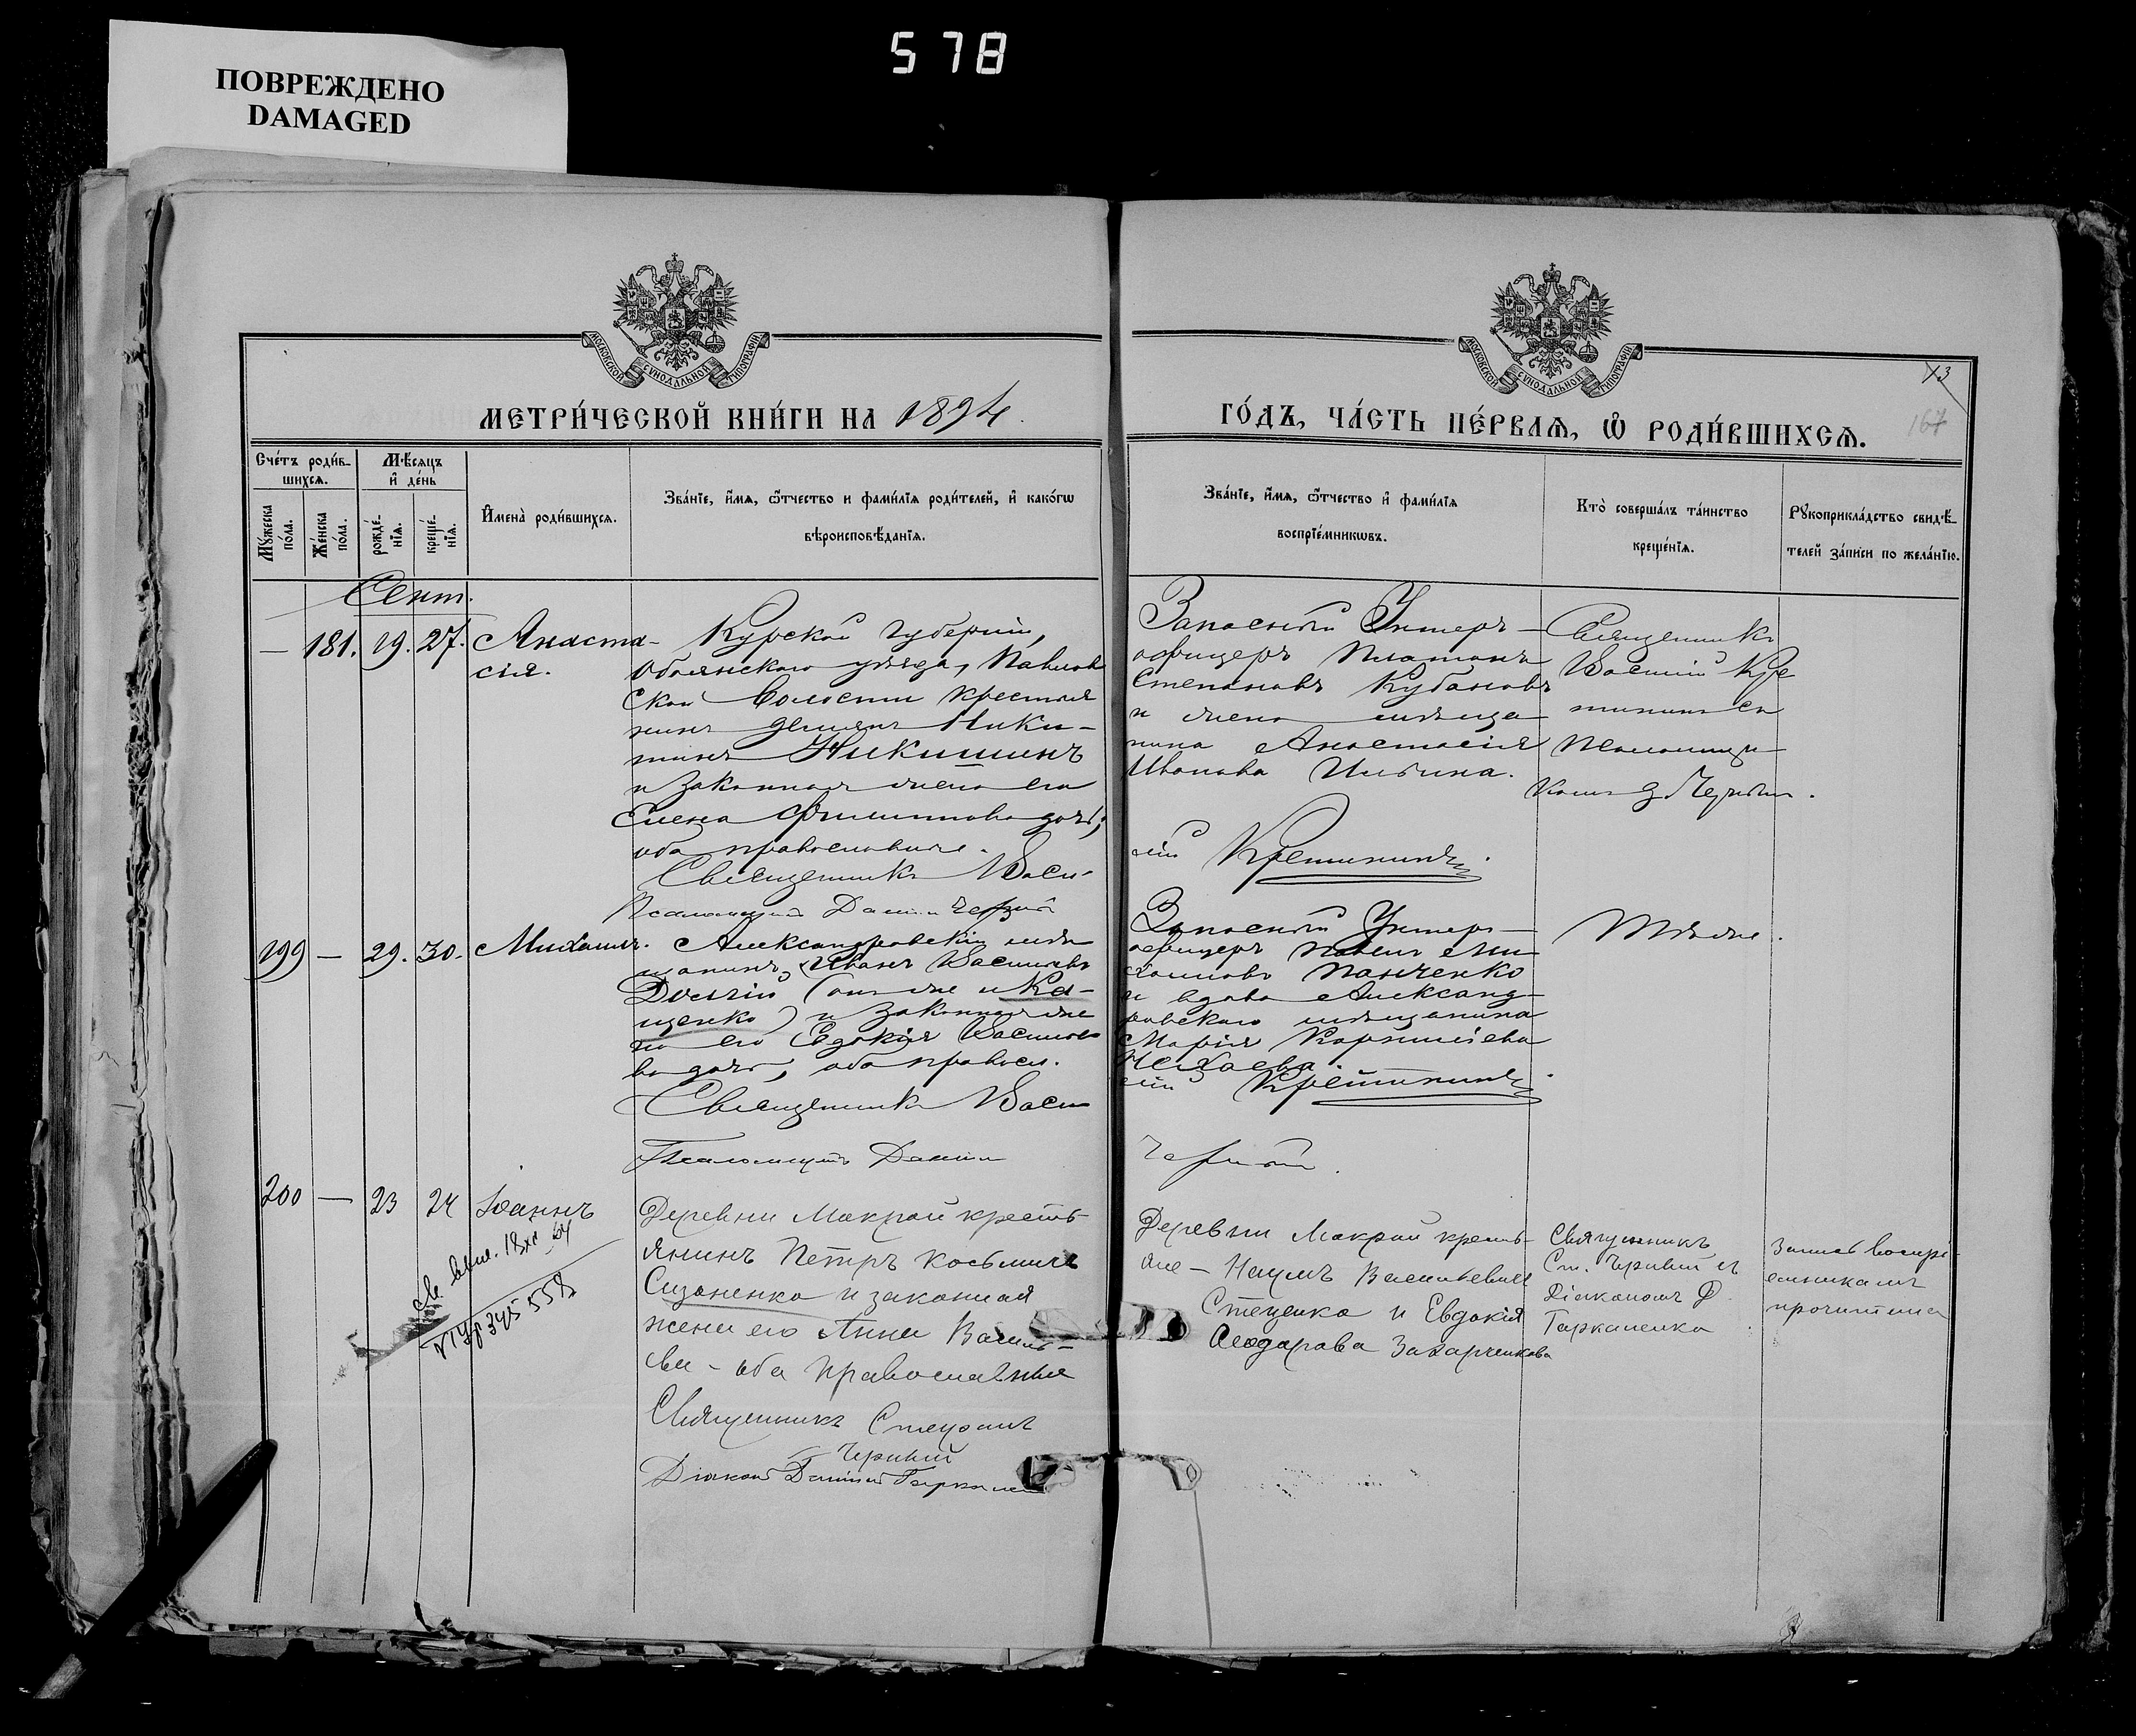 578
ПОВРЕЖДЕНО
DAMAGED
МОСКОВСКОЙ СѴНОДАЛЬНОЙ ТИПОГРАФІИ
МОСКОВСКОЙ СѴНОДАЛЬНОЙ ТИПОГРАФІИ
МЕТРИ́ЧЕСКОЙ КНИ́ГИ НА 1894
ГО́ДЪ, ЧА́СТЬ ПЕ́РВАѦ, Ѿ РОДИ́ВШИХСѦ.
13
167
Сче́тъ роди́в-
шихсѧ.
Мѣ́сѧцъ
и де́нь
Мꙋ́жеска по́ла.
Же́нска по́ла.
рожде́-
нїѧ.
креще́-
нїѧ.
И҆мена̀ роди́вшихсѧ.
Зва́нїе, и҆́мѧ, ѻ҆́тчество и фами́лїѧ роди́телей, и҆ како́гѡ
вѣроисповѣ́данїѧ.
Зва́нїе, и҆́мѧ, ѻ҆́тчество и҆ фами́лїѧ
воспрїе́мникѡвъ.
Кто̀ соверша́лъ та́инство
креще́нїѧ.
Рꙋкоприкла́дство свидѣ́-
телей за́писи по жела́нїю.
Сент.
— 181. 19. 27. Анаста-
сія.
Курской губерніи,
Обоянскаго уѣзда, Павлов
ской волости крестья
нинъ Демьянъ Ники-
тинъ Никишинъ
и законная жена его
Елена Филиппова дочь,
оба православные.
Священникъ Васи-
лій Кретининъ.
Псаломщикъ Даніилъ Черный
Запасный Унтеръ-
офицеръ Платонъ
Степановъ Кубановъ
и жена мѣща
нина Анастасія
Иванова Ильина.
Священникъ
Василій Кре
тининъ съ
Псаломщи-
комъ Д. Чернымъ.
199 — 29. 30. Михаилъ.
Александровскій мѣ
щанинъ, Иванъ Васильевъ
(онъ же и Ка-
щенко) и законная же
на его Евдокія Василье
ва дочь, оба правосл.
Священникъ Васи
лій Кретининъ.
Псаломщикъ Даніилъ
Черный.
Запасный Унтеръ-
офицеръ Павелъ Ми
хайловъ Панченко
и вдова Александ-
ровскаго мѣщанина
Марія Корнилієва
Нехаева.
Тѣ же.
200 — 23 24 Іоаннъ
Деревни Мокрой кресть-
янинъ Петръ Косьмичъ
Сизоненко и законная
жена его Анна Василь-
ева - оба православные
Священникъ Стефанъ
Черный
Діаконъ Даніилъ
Деревни Мокрой кресть-
яне - Наумъ Васильевичъ
Стеценко и Евдокія
Ѳеодорова Захарченкова
Священникъ
Ст. Черный съ
Діакономъ Д.
Запись воспрі-
емникамъ
прочитана